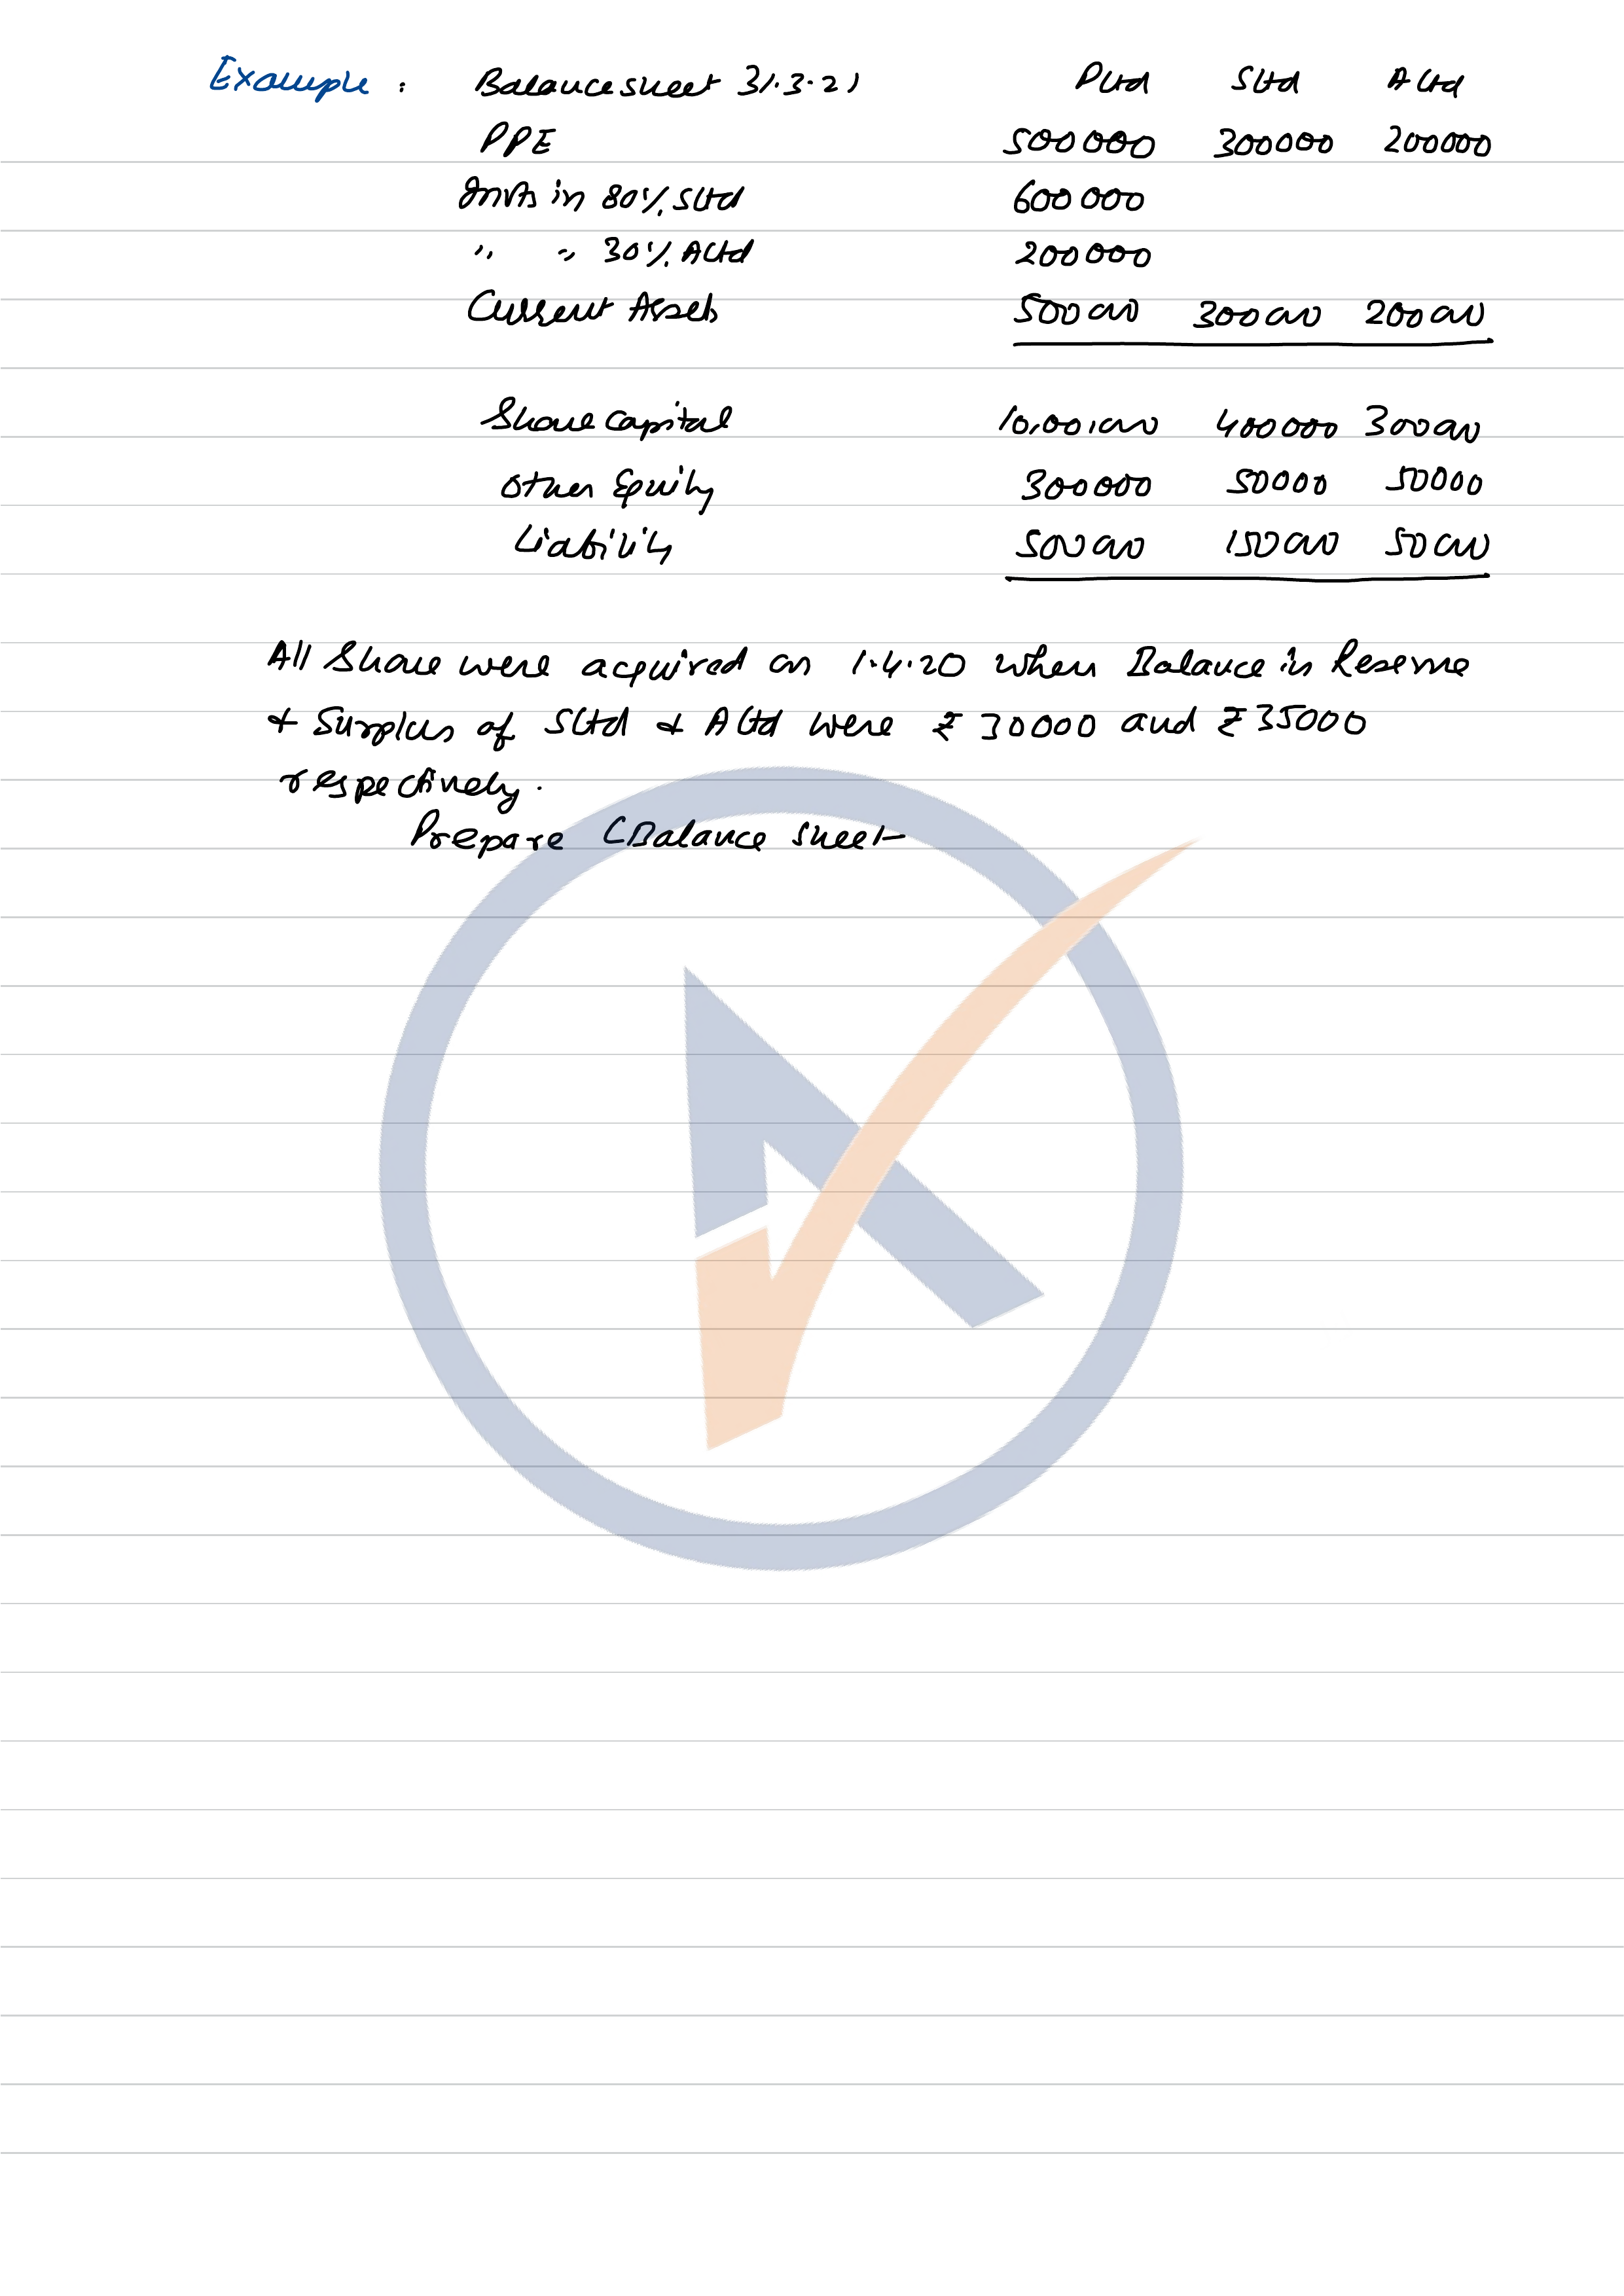 Example : Balance sheet 31.3.21 P Ltd S Ltd A Ltd
PPE 500000 300000 200000
Invts in 80% S Ltd 600000
" " 30% A Ltd 200000
Current Assets 500000 300000 200000
Share capital 10,00,000 400000 300000
other Equity 300000 50000 50000
Liability 500000 150000 50000
All Share were acquired on 1.4.20 when Balance in Reserve
& Surplus of S Ltd & A Ltd were ₹ 30000 and ₹ 35000
respectively.
Prepare CBalance sheet